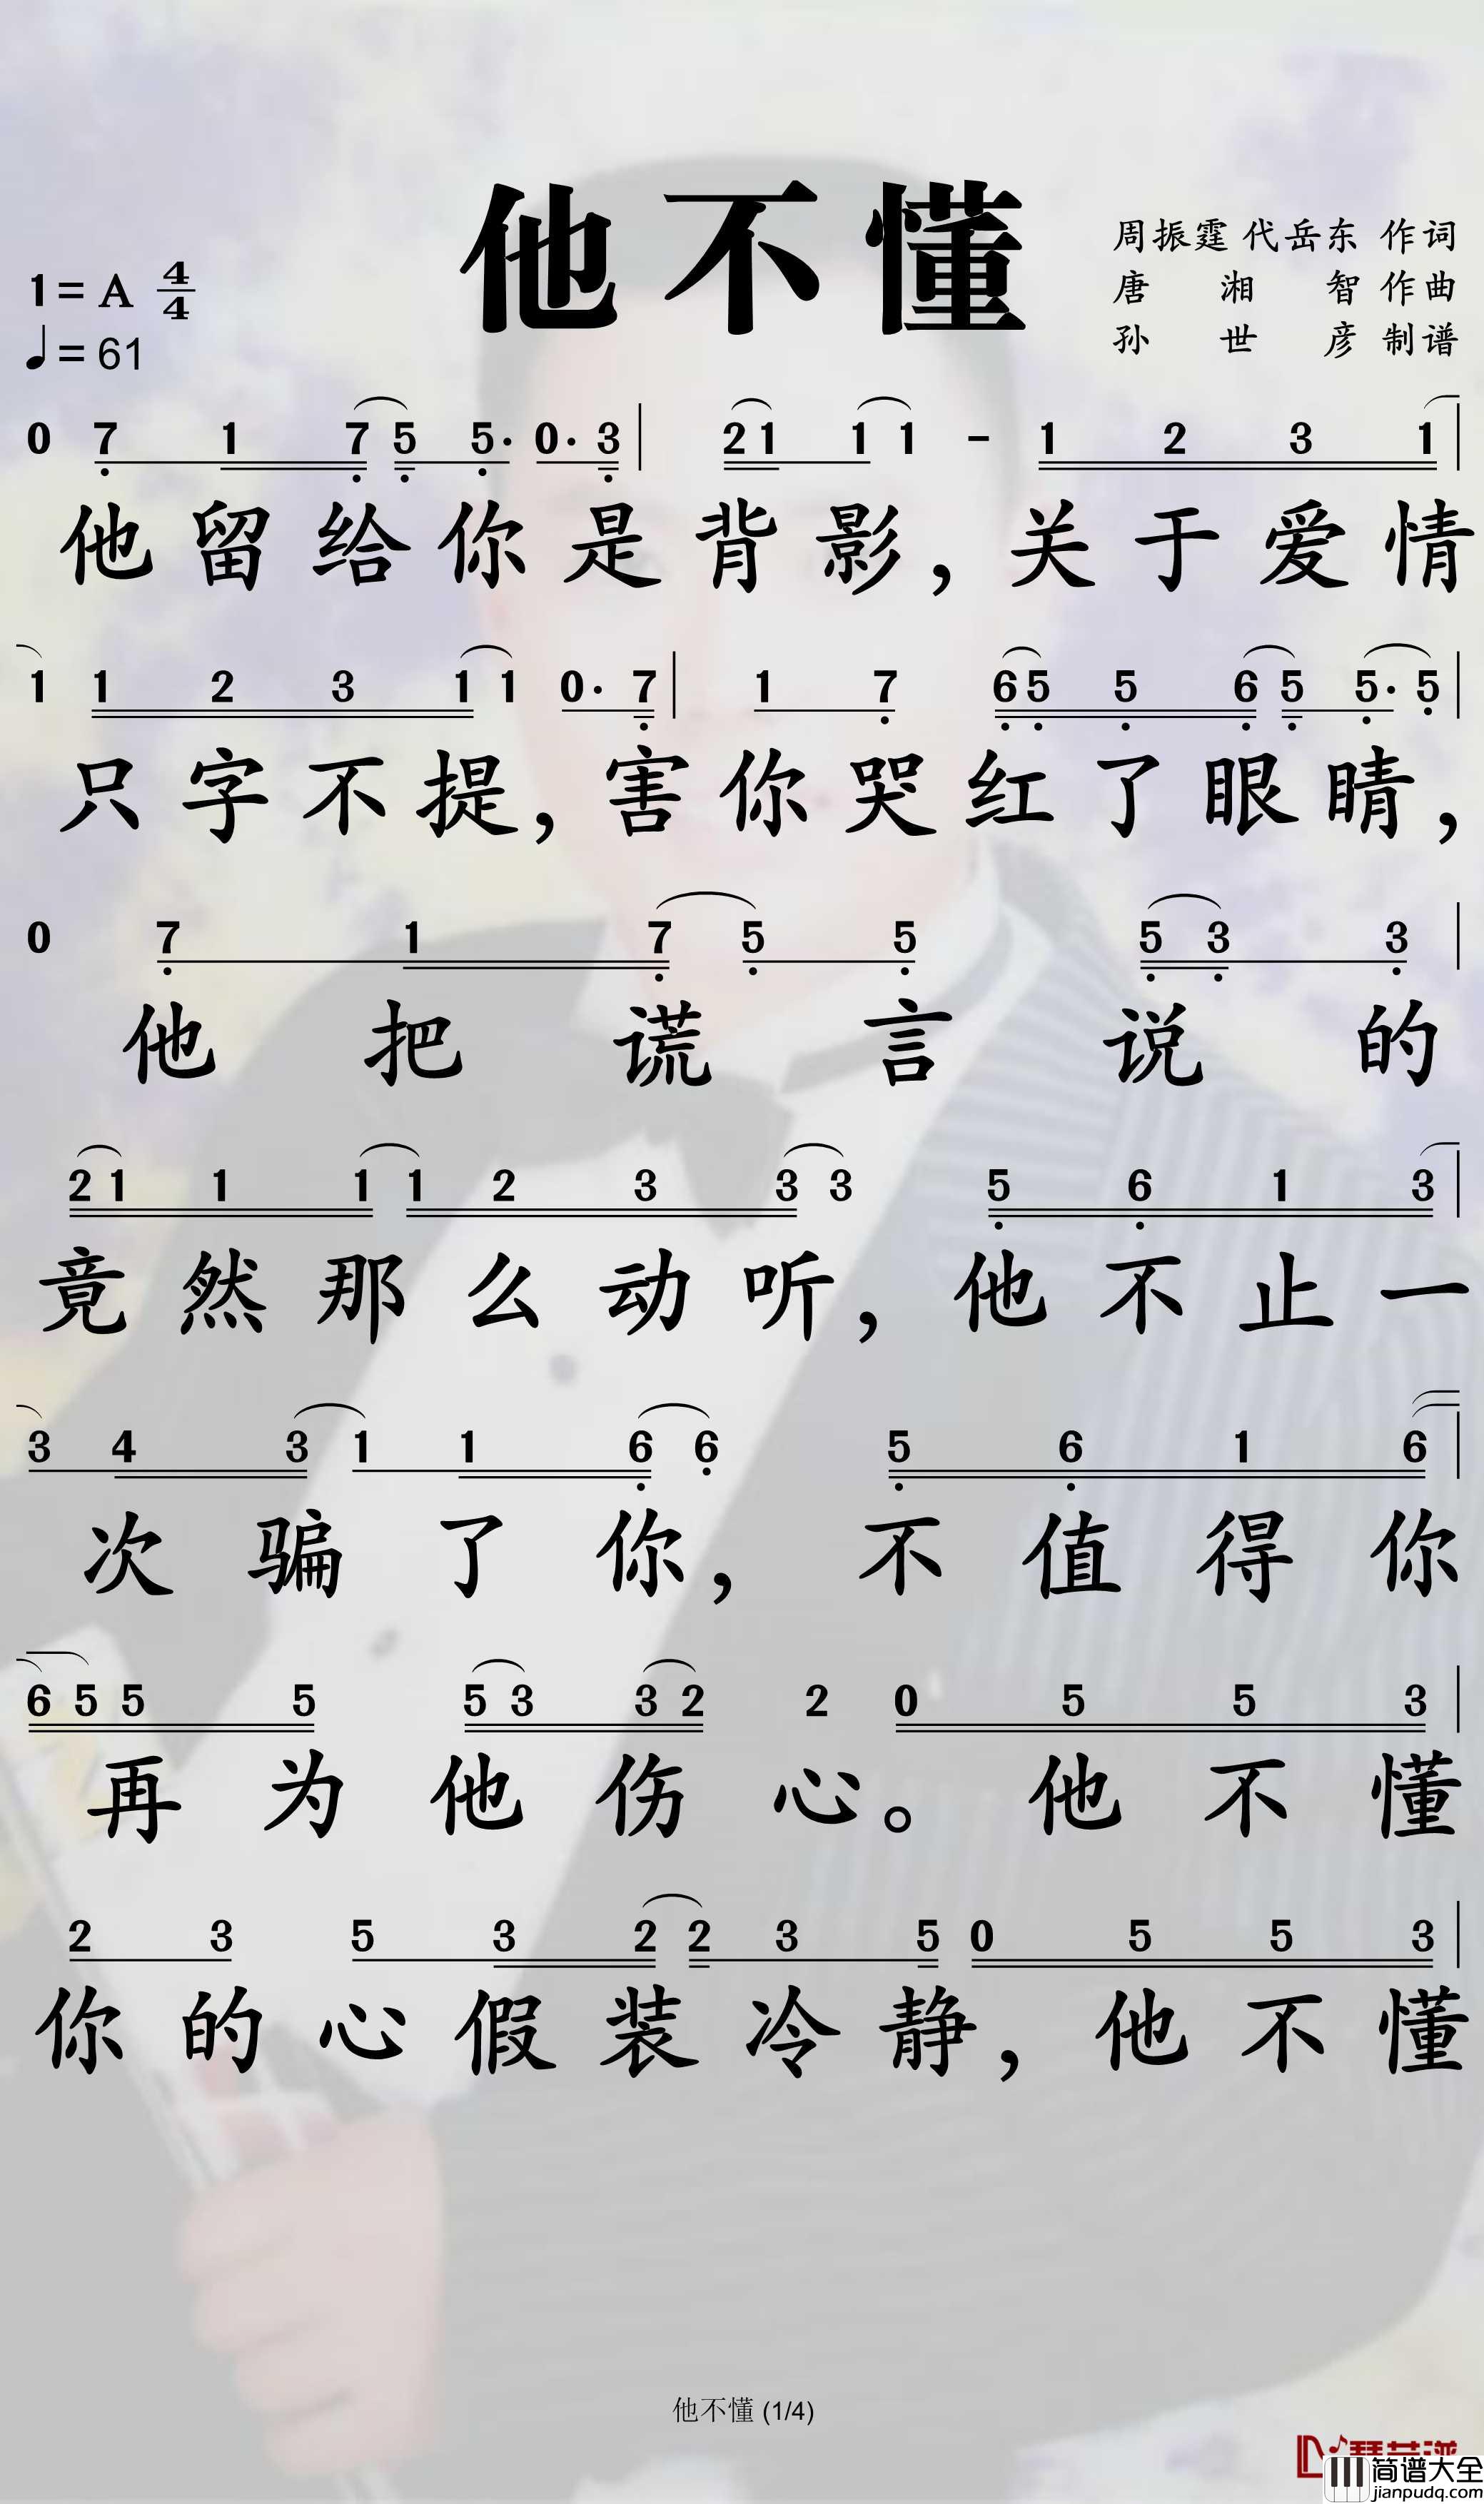 他不懂
周振霆 代岳东 作词
唐湘智 作曲
孙世彦 制谱
1=A 4/4
♩=61
0 7 1 7 5 5· 0· 3 | 2 1 1 1 - 1 2 3 1 |
他留给你是背影，关于爱情
1 1 2 3 1 1 0· 7 | 1 7 6 5 5 6 5 5· 5 |
只字不提，害你哭红了眼睛，
0 7 1 7 5 5 5 3 3 |
他把谎言说的
2 1 1 1 1 2 3 3 3 5 6 1 3 |
竟然那么动听，他不止一
3 4 3 1 1 6 6 5 6 1 6 |
次骗了你，不值得你
6 5 5 5 5 3 3 2 2 0 5 5 3 |
再为他伤心。他不懂
2 3 5 3 2 2 3 5 0 5 5 3 |
你的心假装冷静，他不懂
他不懂 (1/4)
简谱大全
jianpudq.com